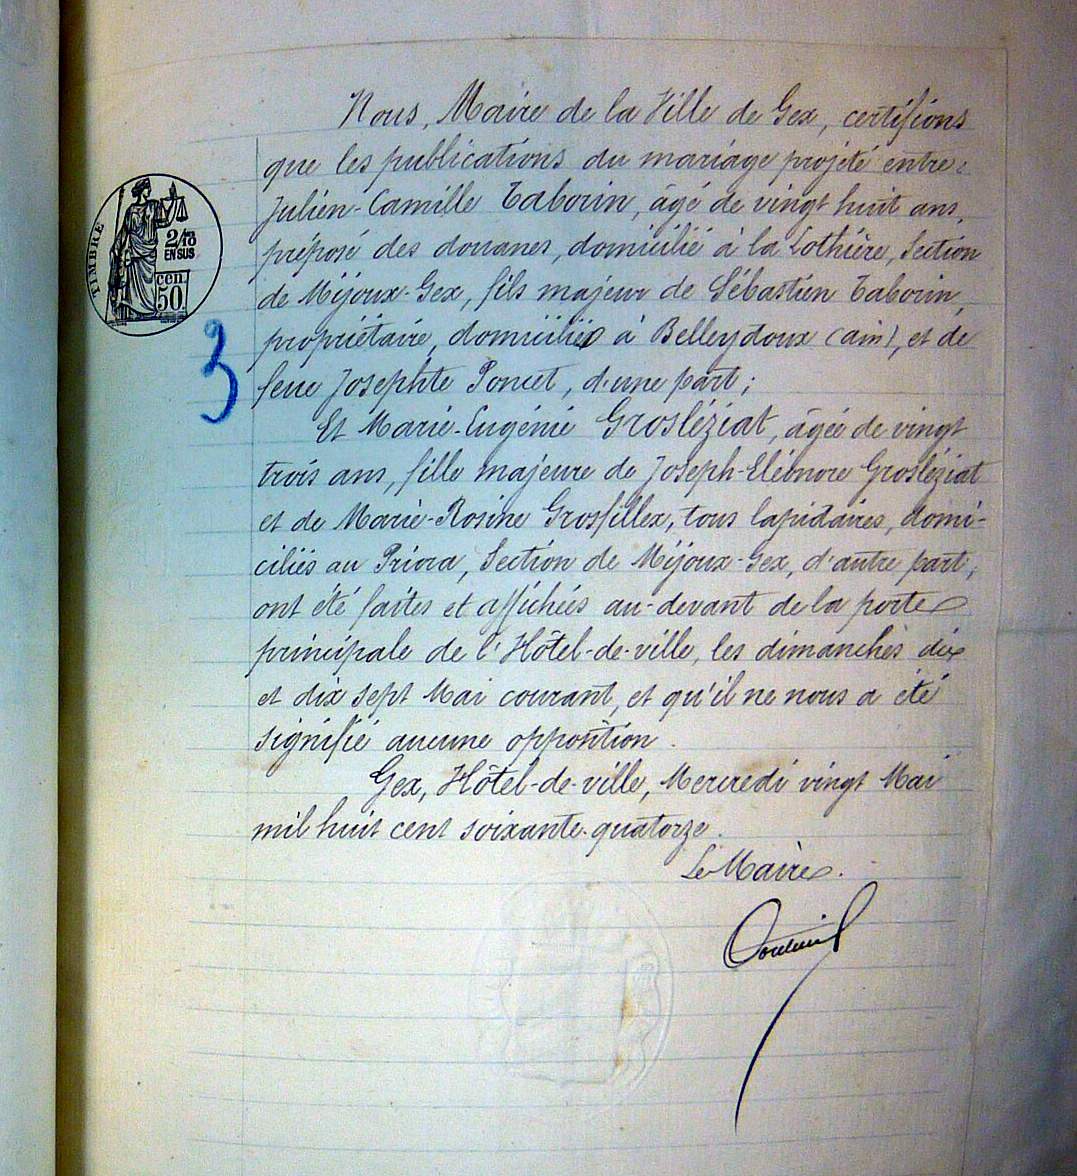 Nous, Maire de la Ville de Gex, certifions
que les publications du mariage projeté entre :
Julien-Camille Taborin, âgé de vingt huit ans,
préposé des douanes, domicilié à la Lothière, Section
de Mijoux-Gex, fils majeur de Sébastien Taborin,
propriétaire, domicilié à Belleydoux (ain), et de
feue Josephte Poncet, d'une part ;
Et Marie-Eugénie Grosléziat, âgée de vingt
trois ans, fille majeure de Joseph-Eléonore Grosléziat
et de Marie-Rosine Grosfillex, tous lapidaires, domi-
ciliés au Priora, Section de Mijoux-Gex, d'autre part,
ont été faites et affichées au-devant de la porte
principale de l'Hôtel-de-ville, les dimanches dix
et dix sept Mai courant, et qu'il ne nous a été
signifié aucune opposition.
Gex, Hôtel-de-ville, Mercredi vingt Mai
mil huit cent soixante-quatorze.
Le Maire.
TIMBRE
2/10
EN SUS
cen.
50
3